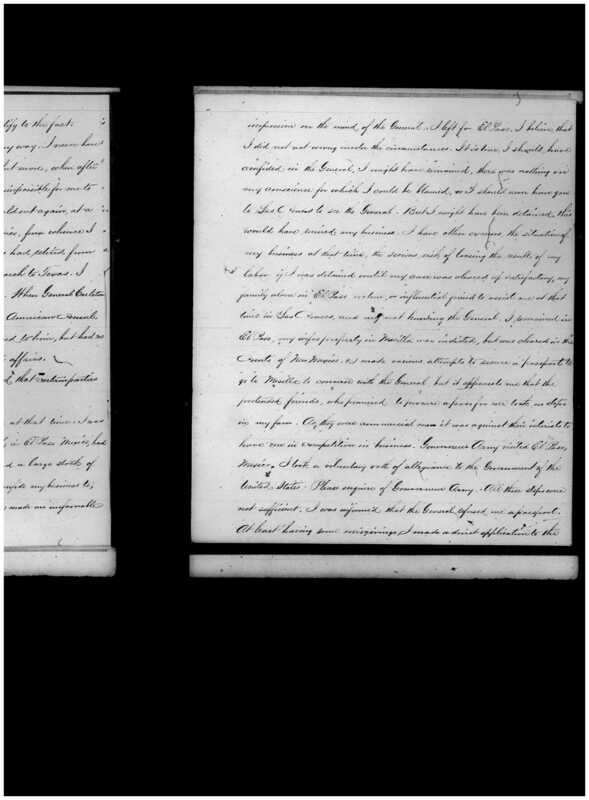 tify to the fact.
my way. I never have
but more, when after
impossible for me to
sell out again, at a
from whence I
had retired from
march to Texas. I
When General Carleton
American Consul
to him, but had no
affairs.
that certain parties
at that time. I was
in El Paso Mexico, had
a large stock of
my business to,
made an unfavorable
3
impression on the mind of the General. I left for El Paso. I believe that
I did not act wrong under the circumstances. It is true, I should have
confided in the General, I might have remained, there was nothing on
my conscience for which I could be blamed, or I should never have gone
to Las Cruces to see the General. But I might have been detained, this
would have ruined my business. I have other excuses, the situation of
my business at that time, the serious risk of loosing the result of my
labor if I was detained until my case was cleared up satisfactory, my
family alone in El Paso, no influential friend to assist me at that
time in Las Cruces, and I not knowing the General. I remained in
El Paso, my wifes property in Mesilla was indicted, but was cleared in the
Courts of New Mexico. I made various attempts to secure a passport to
go to Mesilla to commune with the General, but it appears to me that the
pretended friends, who promised to procure a pass for me took no steps
in my favor. As they were commercial men it was against their interests to
have me in competition in business. Governeur Army visited El Paso,
Mexico. I took a voluntary oath of allegiance to the Government of the
United States. Please enquire of Governeur Army. All these steps were
not sufficient. I was informed that the General refused me a passport.
At least having some misgivings I made a direct application to the